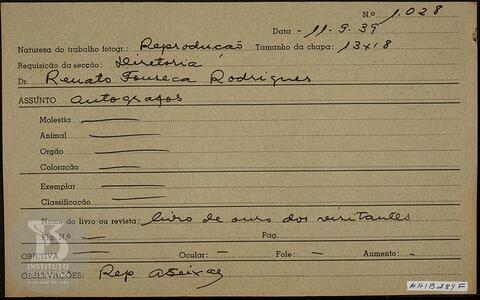 N.o 1.028
Data - 11-9-39
Natureza do trabalho fotogr.: Reprodução Tamanho da chapa: 13x18
Requisição da secção: Diretoria
Dr. Renato Fonseca Rodrigues
ASSUNTO autografos
Molestia
Animal
Orgão
Coloração
Exemplar
Classificação
Nome do livro ou revista: livro de ouro dos visitantes
Fig. N.o - Pag.
OBJETIVA - Ocular: - Fole: - Aumento: -
OBSERVAÇÕES: Rep.
INSTITUTO